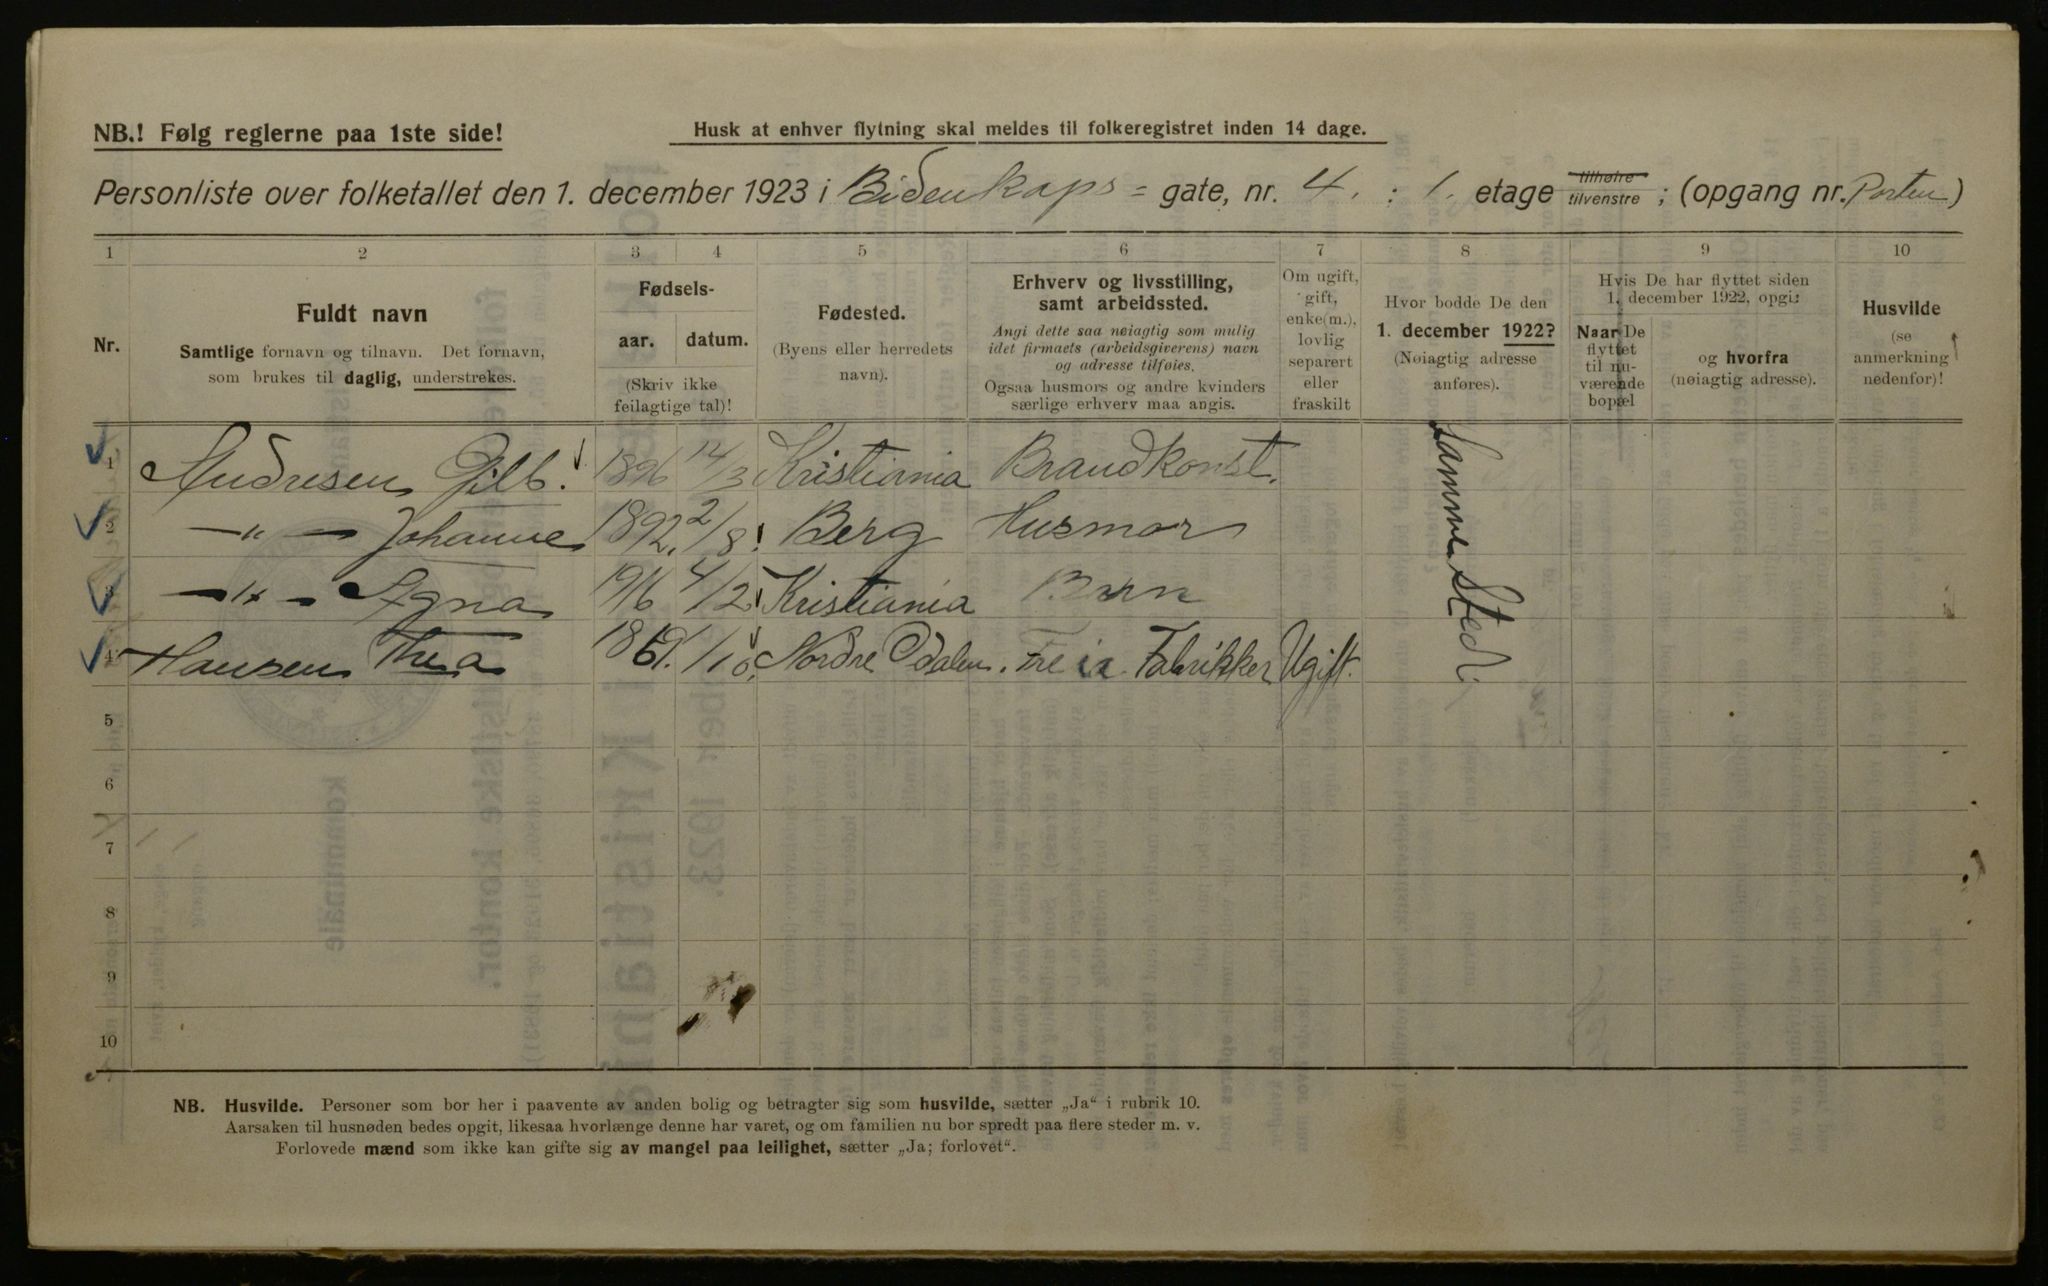 NB.! Følg reglerne paa 1ste side!
Husk at enhver flytning skal meldes til folkeregistret inden 14 dage.
Personliste over folketallet den 1. december 1923 i Bidenkaps = gate, nr. 4. : 1. etage tilhøire tilvenstre ; (opgang nr. Porten)
1 2 3 4 5 6 7 8 9 10
Nr.
Fuldt navn
Samtlige fornavn og tilnavn. Det fornavn,
som brukes til daglig, understrekes.
Fødsels-
aar. datum.
(Skriv ikke
feilagtige tal)!
Fødested.
(Byens eller herredets
navn).
Erhverv og livsstilling,
samt arbeidssted.
Angi dette saa nøiagtig som mulig
idet firmaets (arbeidsgiverens) navn
og adresse tilføies.
Ogsaa husmors og andre kvinders
særlige erhverv maa angis.
Om ugift,
gift,
enke(m.),
lovlig
separert
eller
fraskilt
Hvor bodde De den
1. december 1922?
(Nøiagtig adresse
anføres).
Hvis De har flyttet siden
1. december 1922, opgi:
Naar De
flyttet
til nu-
værende
bopæl
og hvorfra
(nøiagtig adresse).
Husvilde
(se
anmerkning
nedenfor)!
1 Andresen Gilb. 1896 14/3 Kristiania Brandkonst.
2 —„— Johanne 1892. 2/8 Berg Husmor
3 —„— Agna 1916 4/2 Kristiania Barn
4 Hansen Thea /10. Nordre Odalen. Freia Fabrikker Ugift.
Samme Sted.
5
6
7
8
9
10
NB. Husvilde. Personer som bor her i paavente av anden bolig og betragter sig som husvilde, sætter „Ja“ i rubrik 10.
Aarsaken til husnøden bedes opgit, likesaa hvorlænge denne har varet, og om familien nu bor spredt paa flere steder m. v.
Forlovede mænd som ikke kan gifte sig av mangel paa leilighet, sætter „Ja; forlovet“.